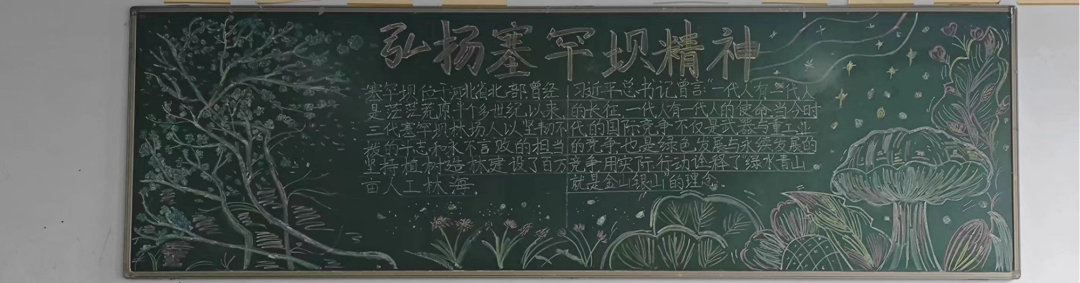 弘扬塞罕坝精神
塞罕坝位于河北省北部曾经
是茫茫荒原半个多世纪以来
三代塞罕坝林场人以坚韧不
拔的斗志和永不言败的担当
坚持植树造林建设了百万
亩人工林海.
习近平总书记曾言:"一代人有一代人
的长征,一代人有一代人的使命"当今时
代的国际竞争不仅是武器与重工业
的竞争,也是绿色发展与永续发展的
竞争用实际行动诠释了"绿水青山
就是金山银山"的理念.